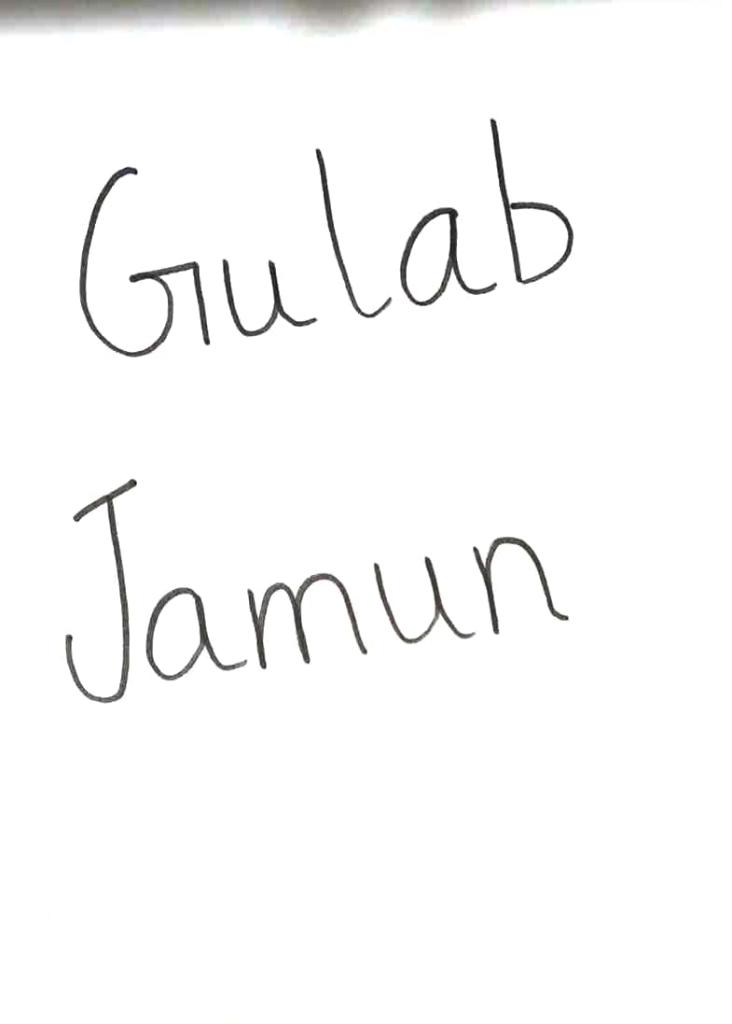 Gulab
Jamun